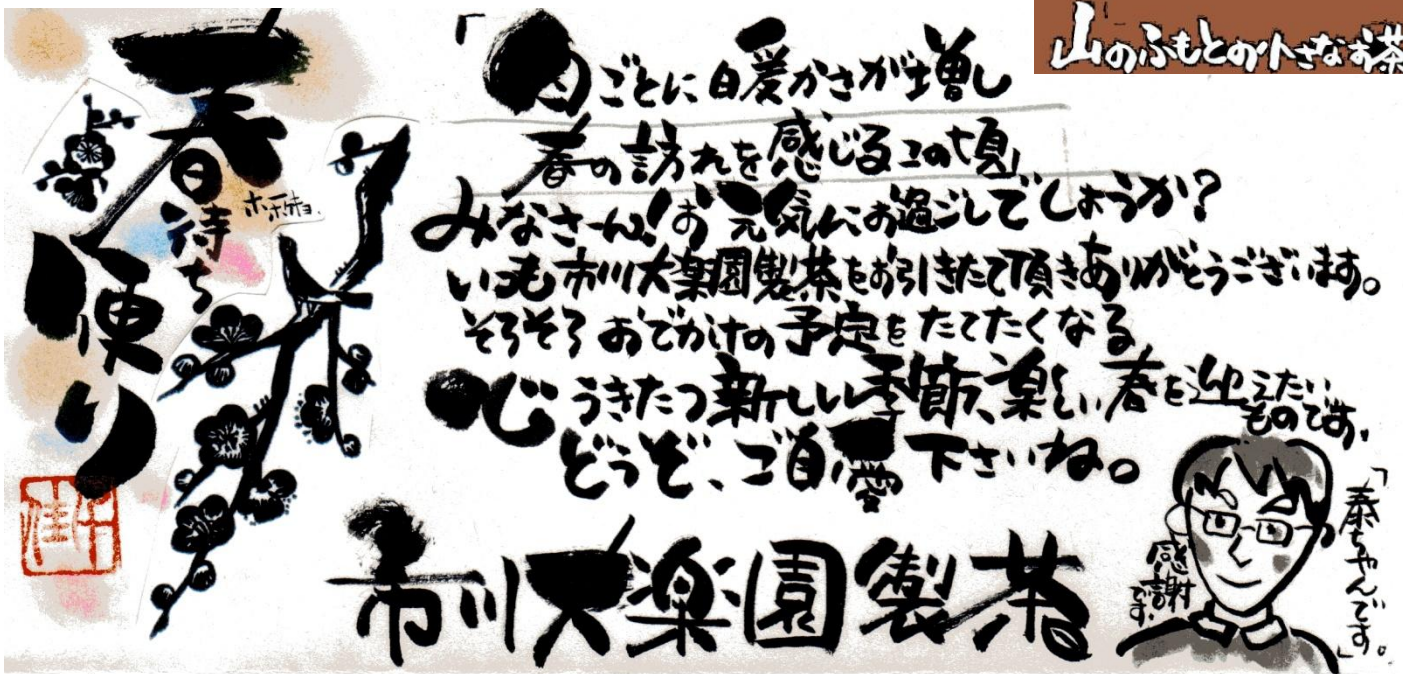 山のふもとの小さなお茶
春待ち
便り
「日ごとに暖かさが増し
春の訪れを感じるこの頃」
みなさーん!お元気にお過ごしでしょうか?
いつも市川大楽園製茶をお引きたて頂きありがとうございます。
そろそろおでかけの予定をたてたくなる
心うきたつ新しい季節、楽しい春を迎えたい
ものです。
どうぞ、ご自愛下さいね。
市川大楽園製茶
感謝
です。
「泰ちゃんです。」